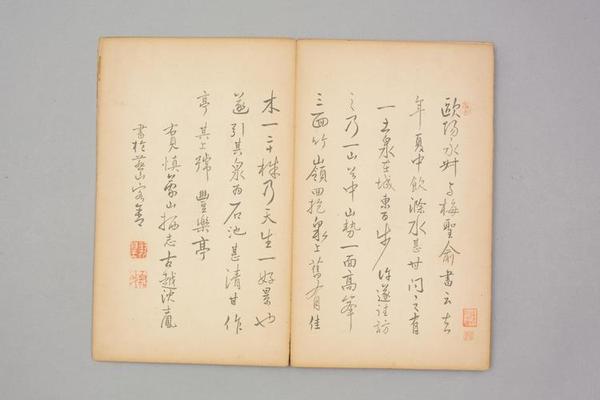 歐陽永叔與梅聖俞書云去
年夏中飲滁水甚甘問之有
一土泉在城東百步許遂往訪
之乃一山谷中山勢一面高峯
三面竹嶺回抱泉上舊有佳
木一二十株乃天生一好景也
遂引其泉為石池甚清甘作
亭其上號豐樂亭
右真慎山栖志古越沈
書於山客舍